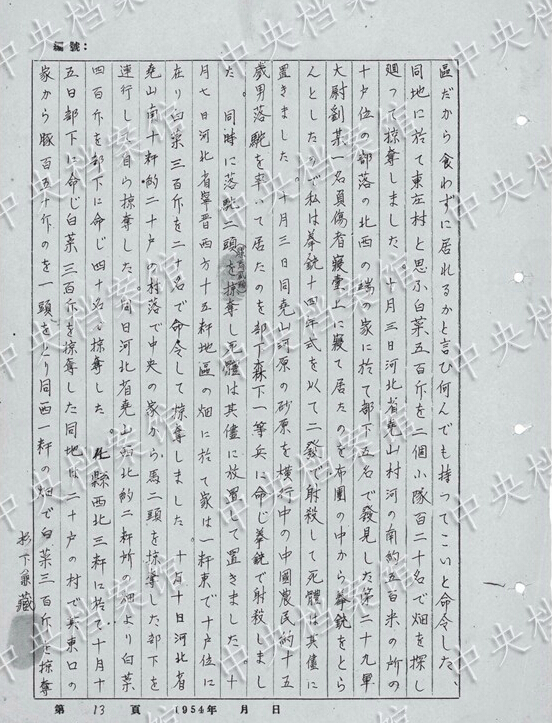 編號：
區だから食わずに居れるかと言ひ何んでも持ってこいと命令した、
同地に於て東左村と思ふ白菜五百斤を二個小隊百二十名で畑を探し
廻って掠奪しました。十月三日河北省堯山村河の南約五百米の所の
十戶位の部落の北西の端の家に於て部下五名で發見した第二十九軍
大尉劉某一名負傷者寢臺上に寢て居たのを布團の中から拳銃をとら
んとしたので私は拳銃十四年式を以て二發で射殺して死體は其儘に
置きました。十月三日同堯山河原の砂原を橫行中の中國農民約十五
歲男落駝を牽いて居たのを部下森下一等兵に命じ拳銃で射殺しまし
た。同時に落駝二頭を掠奪し死體は其儘に放置して置きました。十
月七日河北省寧晋西方十五粁地區の畑に於て家は一粁東で十戶位に
在り白菜三百斤を二十名で命令して掠奪しました。十月十日河北省
堯山南十粁約二十戶の村落で中央の家から馬二頭を掠奪した部下を
連行して自ら掠奪した。同日河北省堯山西北約二粁所の畑より白菜
四百斤を部下に命じ四十名で掠奪した。縣西北三粁に於て十月十
五日部下に命じ白菜三百斤を掠奪した同地は二十戶の村で其東口の
家から豚百五十斤のを一頭をとり同西一粁の畑で白菜三百斤を掠奪
杉下兼藏
第 13 頁 1954年 月 日
中央档案馆